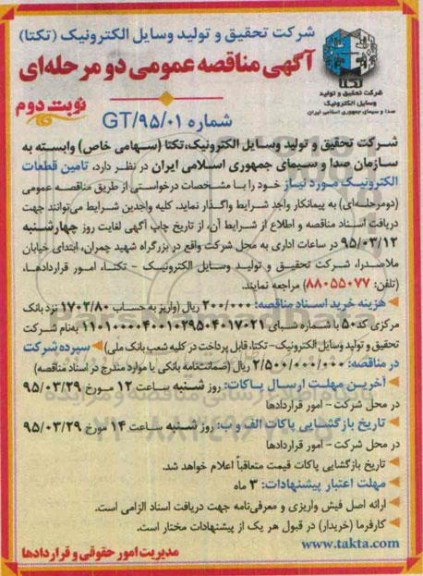 شرکت تحقیق و تولید وسایل الکترونیک (تکتا)
آگهی مناقصه عمومی دو مرحله‌ای
نوبت دوم
شماره GT/۹۵/۰۱
شرکت تحقیق و تولید
وسایل الکترونیک
صدا و سیمای جمهوری اسلامی ایران
شرکت تحقیق و تولید وسایل الکترونیک،تکتا (سهامی خاص) وابسته به
سازمان صدا و سیمای جمهوری اسلامی ایران در نظر دارد، تامین قطعات
الکترونیک مورد نیاز خود را با مشخصات درخواستی از طریق مناقصه عمومی
(دومرحله‌ای) به پیمانکار واجد شرایط واگذار نماید. کلیه واجدین شرایط می‌توانند جهت
دریافت اسناد مناقصه و اطلاع از شرایط آن، از تاریخ چاپ آگهی لغایت روز چهارشنبه
۹۵/۰۳/۱۲ در ساعات اداری به محل شرکت واقع در بزرگراه شهید چمران، ابتدای خیابان
ملاصدرا، شرکت تحقیق و تولید وسایل الکترونیک - تکتا، امور قراردادها،
(تلفن: ۸۸۰۵۵۰۷۷) مراجعه نمایند.
هزینه خرید اسناد مناقصه: ۲۰۰/۰۰۰ ریال (واریز به حساب ۱۷۰۲/۸۰ نزد بانک
مرکزی کد۵۰ با شماره شبای به‌نام شرکت
تحقیق و تولید وسایل الکترونیک-تکتا، قابل پرداخت در کلیه شعب بانک ملی) سپرده شرکت
در مناقصه: ۲/۵۰۰/۰۰۰/۰۰۰ ریال (ضمانتنامه بانکی یا موارد مندرج در اسناد مناقصه)
آخرین مهلت ارسال پاکات: روز شنبه ساعت ۱۲ مورخ ۹۵/۰۳/۲۹
در محل شرکت - امور قراردادها
تاریخ بازگشایی پاکات الف و ب: روز شنبه ساعت ۱۴ مورخ ۹۵/۰۳/۲۹
در محل شرکت - امور قراردادها
تاریخ بازگشایی پاکات قیمت متعاقباً اعلام خواهد شد.
مهلت اعتبار پیشنهادات: ۳ ماه
ارائه اصل فیش واریزی و معرفی‌نامه جهت دریافت اسناد الزامی است.
کارفرما (خریدار) در قبول هر یک از پیشنهادات مختار است.
www.takta.com
مدیریت امور حقوقی و قراردادها